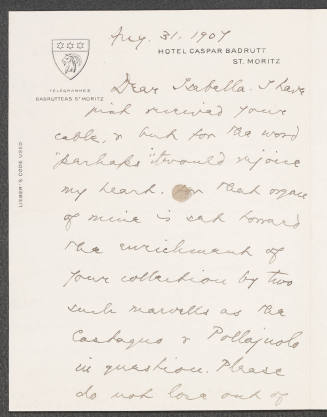 Aug. 31. 1907
HOTEL CASPAR BADRUTT
ST. MORITZ
TELEGRAMMES
BADRUTTCAS ST MORITZ
LIEBER'S CODE USED
Dear Isabella. I have
just received your
cable, & but for the word
"perhaps" it would rejoice
my heart. For that organ
of mine is set toward
the enrichment of
your collection by two
such marvells as the
Castagno & Pollajuolo
in question. Please
do not lose out of